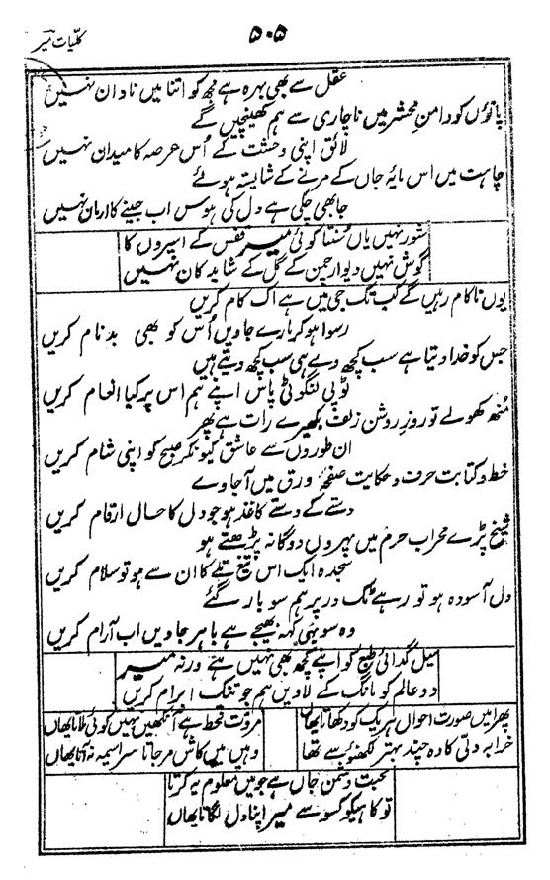 ۵۰۵
کلیات میر
عقل سے بھی بہرہ ہے مجھ کو اتنا میں نادان نہیں
پاؤں کو دامنِ محشر میں ناچاری سے ہم کھینچیں گے
لائق اپنی وحشت کے اُس عرصہ کا میدان نہیں
چاہت میں اس مایۂ جاں کے مرنے کے شایستہ ہوئے
جا بھی چکی ہے دل کی ہوس اب جینے کا ارمان نہیں
شور نہیں یاں سُنتا کوئی میر قفس کے اسیروں کا
گوش نہیں دیوار چمن کے گل کے شاید کان نہیں
یوں ناکام رہیں گے کب تک جی میں ہے اک کام کریں
رسوا ہوکر مارے جاویں اُس کو بھی بدنام کریں
جس کو خدا دیتا ہے سب کچھ وے ہی سب کچھ دیتے ہیں
ٹوپی لنگوٹی پاس اپنے ہم اس پر کیا انعام کریں
منھ کھولے تو روز روشن زلف بکھیرے رات ہے پھر
ان طوروں سے عاشق کیونکر صبح کو اپنی شام کریں
خط و کتابت حرف و حکایت صفحۂ ورق میں آجاوے
دستے کے دستے کاغذ ہو جو دل کا حال ارقام کریں
شیخ پڑے محراب حرم میں پہروں دوگانہ پڑھتے ہو
سجدہ ایک اس تیغ تلے کا ان سے ہو تو سلام کریں
دل آسودہ ہو تو رہے ٹک در پر ہم سو بار گئے
وہ سو یہی کہہ بھیجے ہے باہر جاویں اب آرام کریں
میل گدائی طبع کو اپنے کچھ بھی نہیں ہے ورنہ میر
دو عالم کو مانگ کے لاویں ہم جو تنک ابرام کریں
پھرا میں صورت احوال ہر یک کو دکھاتا یھاں مروت قحط ہے آنکھیں نہیں کوئی ملاتا یھاں
خرابہ دلی کا دہ چند بہتر لکھنؤ سے تھا وہیں میں کاش مر جاتا سراسیمہ نہ آتا یھاں
محبت دشمن جاں ہے جو میں معلوم یہ کرتا
تو کاہیکو کسو سے میر اپنا دل لگاتا یھاں